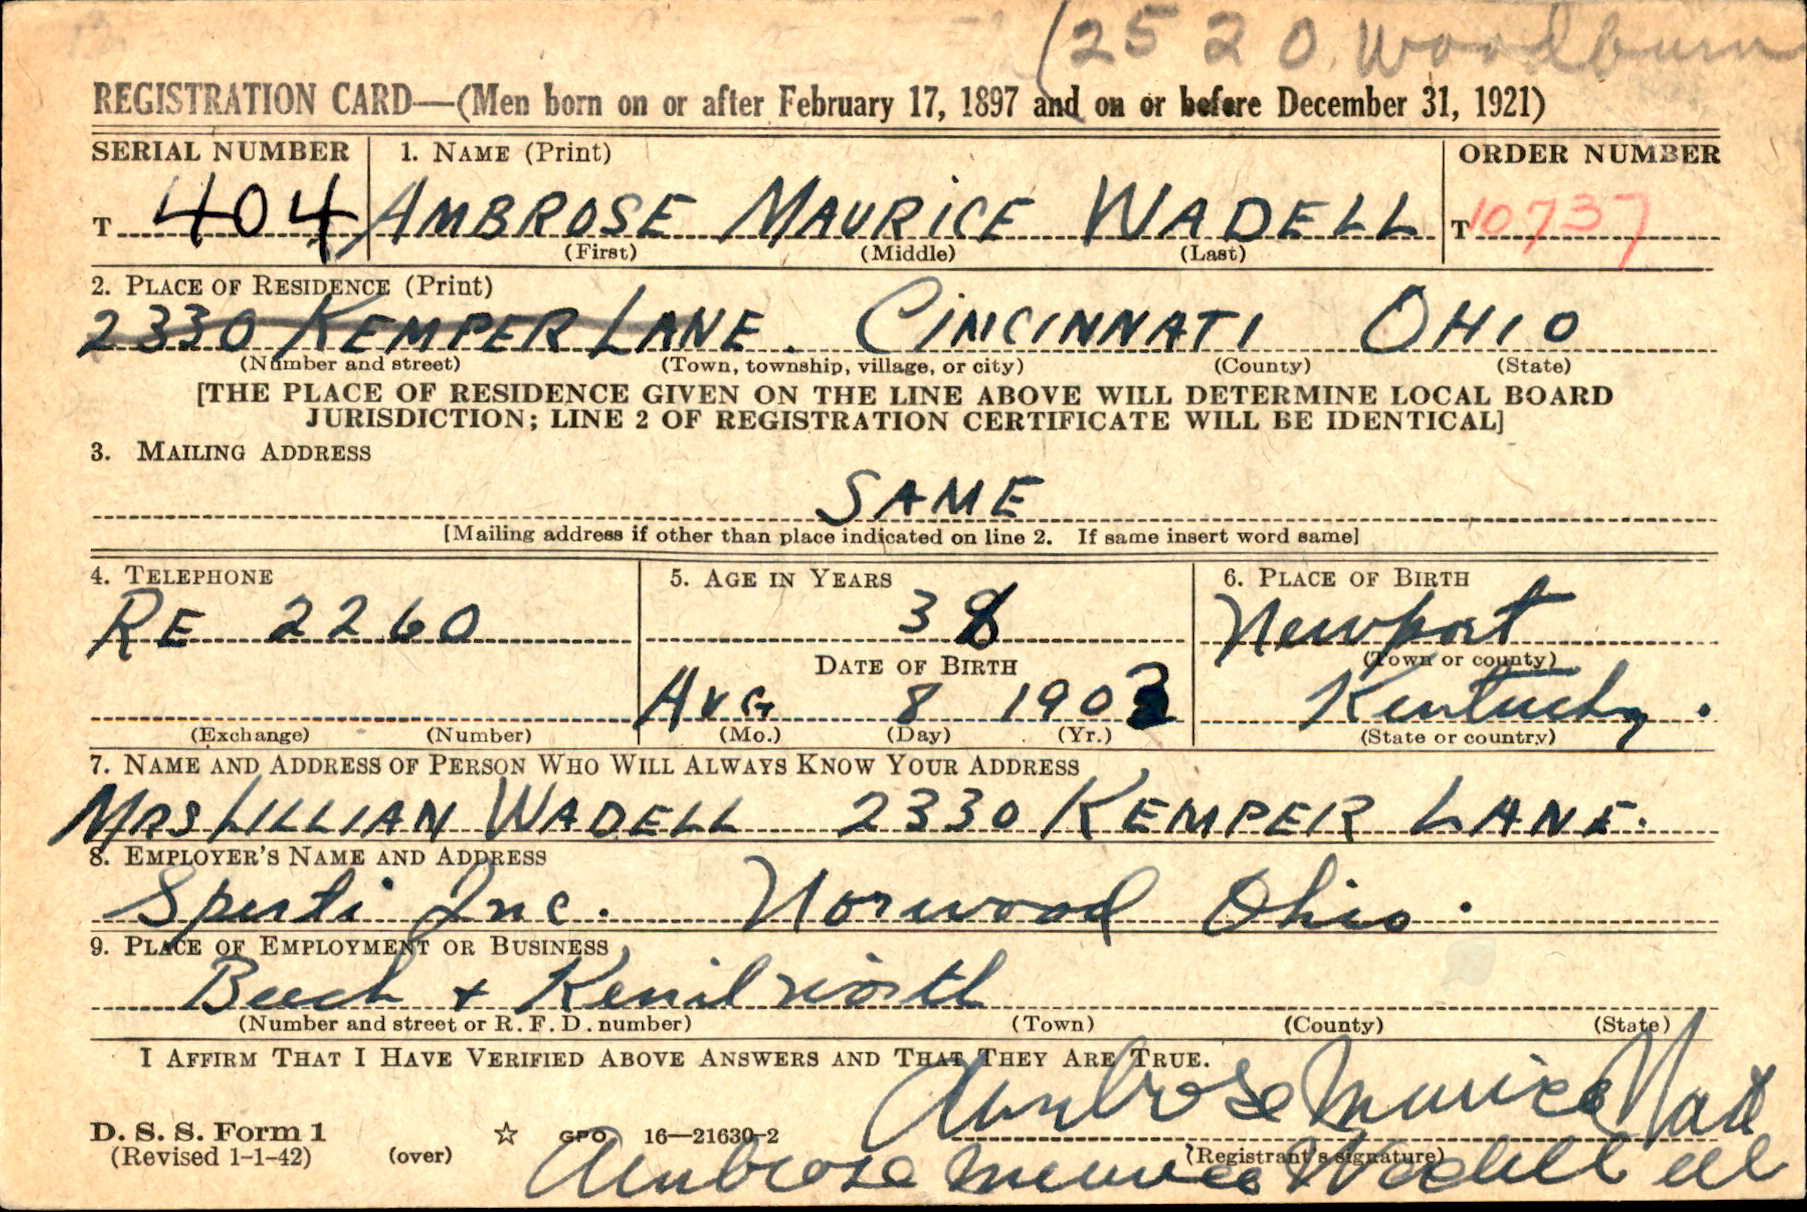 (2520 Woodburn
REGISTRATION CARD—(Men born on or after February 17, 1897 and on or before December 31, 1921)
SERIAL NUMBER 1. NAME (Print) ORDER NUMBER
T 404 AMBROSE MAURICE WADELL T 10737
(First) (Middle) (Last)
2. PLACE OF RESIDENCE (Print)
2330 KEMPER LANE. CINCINNATI OHIO
(Number and street) (Town, township, village, or city) (County) (State)
[THE PLACE OF RESIDENCE GIVEN ON THE LINE ABOVE WILL DETERMINE LOCAL BOARD
JURISDICTION; LINE 2 OF REGISTRATION CERTIFICATE WILL BE IDENTICAL]
3. MAILING ADDRESS
SAME
[Mailing address if other than place indicated on line 2. If same insert word same]
4. TELEPHONE 5. AGE IN YEARS 6. PLACE OF BIRTH
RE 2260 38 Newport
DATE OF BIRTH (Town or county)
AUG 8 1903 Kentucky.
(Exchange) (Number) (Mo.) (Day) (Yr.) (State or country)
7. NAME AND ADDRESS OF PERSON WHO WILL ALWAYS KNOW YOUR ADDRESS
MRS LILLIAN WADELL 2330 KEMPER LANE.
8. EMPLOYER'S NAME AND ADDRESS
Sperti Inc. Norwood Ohio.
9. PLACE OF EMPLOYMENT OR BUSINESS
Beech + Kenilworth
(Number and street or R. F. D. number) (Town) (County) (State)
I AFFIRM THAT I HAVE VERIFIED ABOVE ANSWERS AND THAT THEY ARE TRUE.
Ambrose Maurice Wad
D. S. S. Form 1 GPO 16—21630-2
(Revised 1-1-42) (over) (Registrant's signature)
Ambrose Maurice Wadell ell